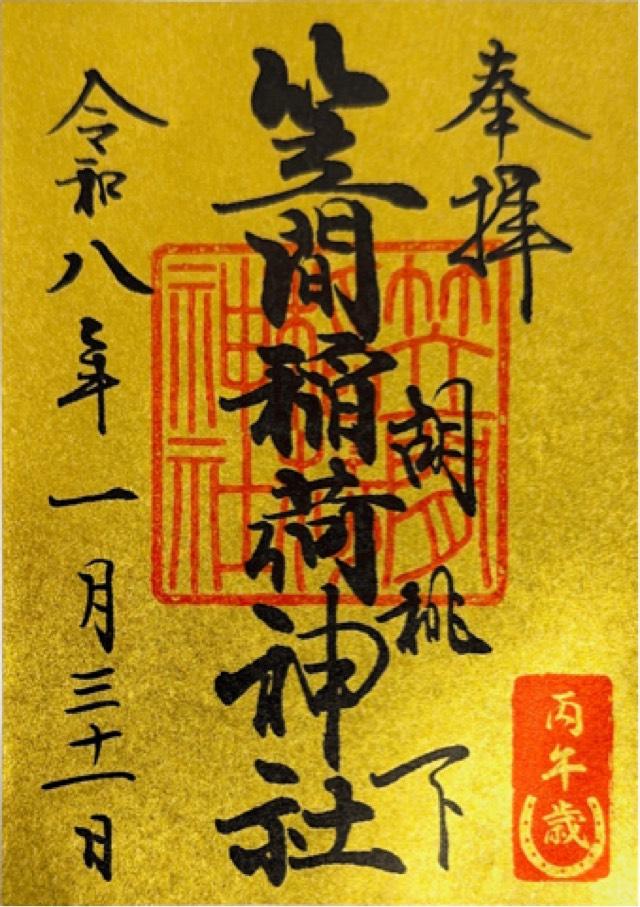 奉拝
胡桃下
笠間稲荷神社
笠間稲荷神社
令和八年一月三十一日
丙午歳